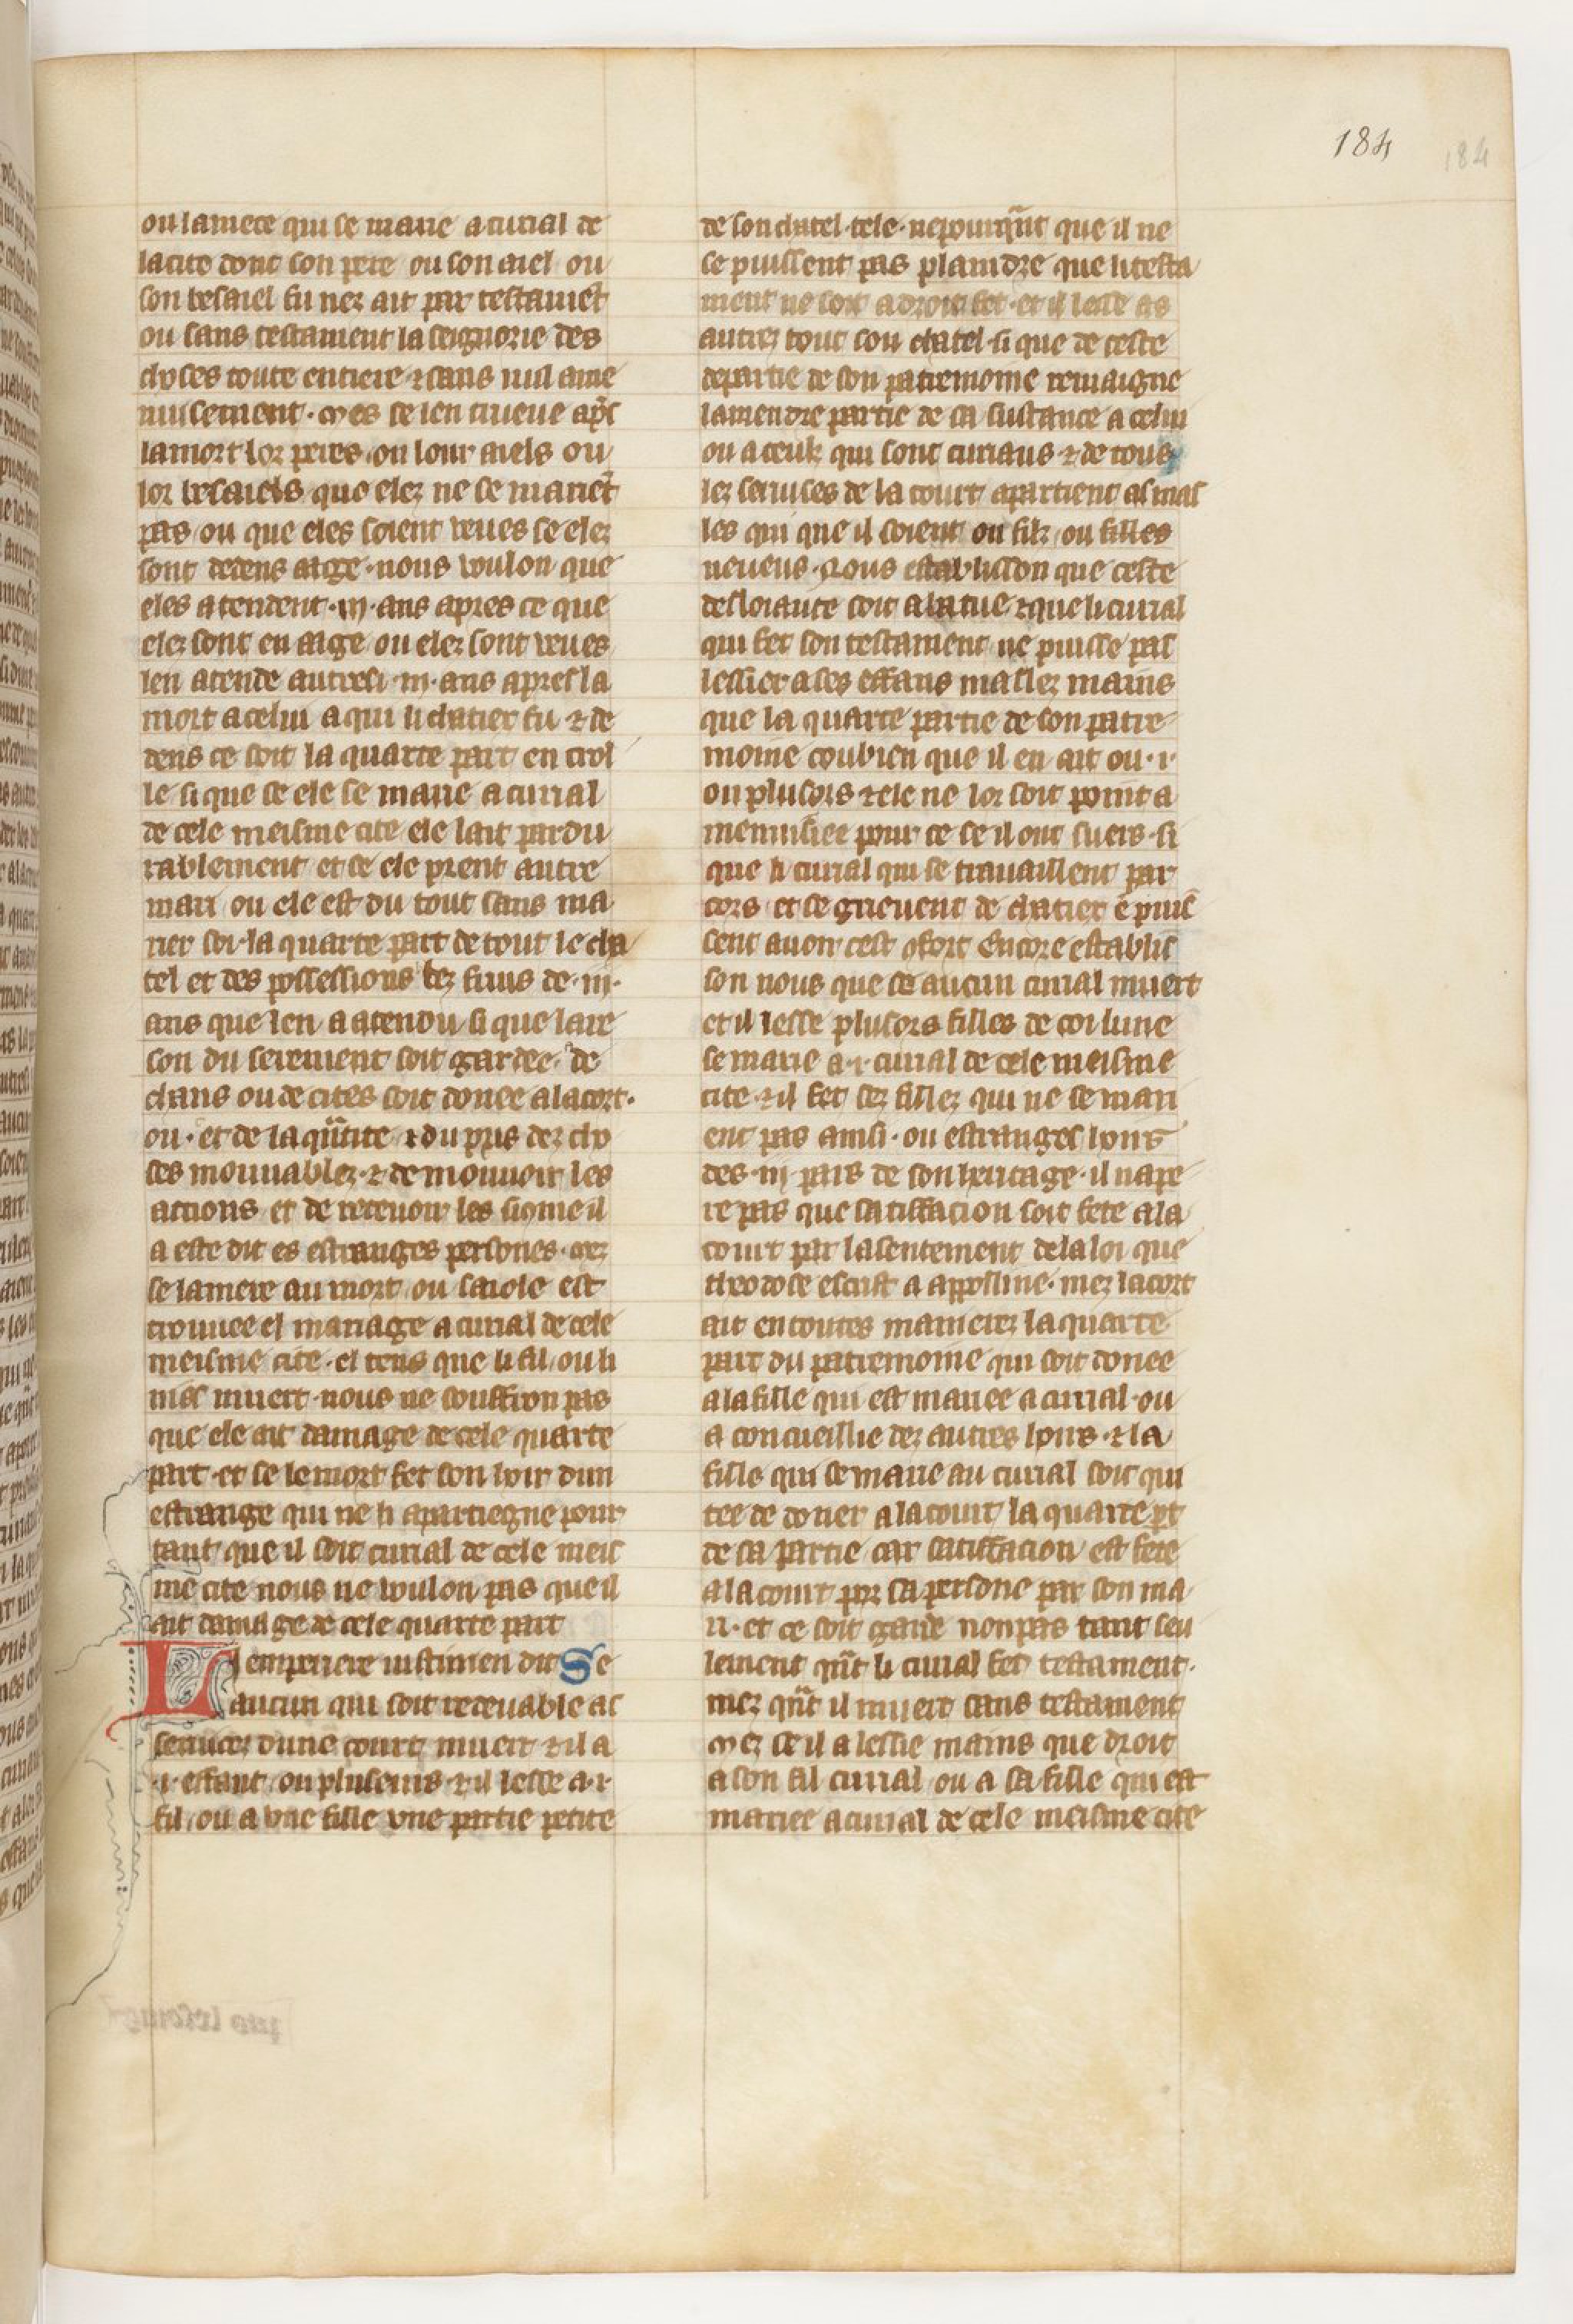 184
184
ou la niece qui se marie a curial de
la cite dont son pere ou son aiel ou
son besaiel fu nez ait par testamẽt
ou sans testament la seignorie des
choses toute entiere ⁊ sans nul ame
nuisement. mes se len trueue ap̃s
la mort lor peres ou lour aiels ou
lor besaiels que elez ne se mariẽt
pas ou que eles soient veues se elez
sont dedens aage. nous voulon que
eles atendent .iii. ans apres ce que
elez sont en aage ou elez sont veues
len atende autresi .iii. ans apres la
mort a celui a qui li chatier fu ⁊ de
dens ce soit la quarte part en crol
le si que se ele se marie a curial
de cele meisme cite ele lait pardu
rablement et se ele prent autre
mari ou ele est du tout sans ma
rier soi la quarte part de tout le cha
tel et des possessions lez fruis de .iii.
ans que len a atendu si que la re
son du serement soit gardee. de
chans ou de cites soit donee a la cort.
ou. et de la qũtite ⁊ du pris dez cho
ses mouuablez. ⁊ de mouuoir les
actions et de retenoir les si ome il
a este dit es estranges persones. mez
se la mere au mort ou saiole est
trouuee el mariage a curial de cele
meisme cite. el tens que li fil ou li
niés muert. nous ne souffron pas
que ele ait damage de cele quarte
part. et se le mort fet son hoir dun
estrange qui ne li apartiegne pour
tant que il soit curial de cele meis
me cite nous ne voulon pas que il
ait damage de cele quarte part
L lemperiere iustinien dit Se
aucun qui soit receuable as
seruicez dune court muert ⁊ il a
.i. effant ou pluseurs ⁊ il lesse a .i.
fil ou a une fille une partie petite
de son chatel tele. nepourq̃nt que il ne
se puissent pas plaindre que li testa
ment ne soit a droit fet. et il lesse as
autrez tout son chatel si que de ceste
departie de son patremoine remaigne
la mendre partie de sa sustance a celui
ou a ceulz qui sont curiaus ⁊ de tous
lez seruises de la court apartient as mas
les qui que il soient ou filz ou filles
neueus. Nous establisson que ceste
desloiaute soit abatue ⁊ que li curial
qui fet son testament ne puisse pas
lessier a ses effans maslez mains
que la quarte partie de son patre
moine conbien que il en ait ou .i.
ou plusors ⁊ ele ne lor soit point a
menuisiee pour ce se il ont suers. si
que li curial qui se trauaillent par
cors et se grieuent de chatier ẽ puis̃
sent auoir cest ꝯfort Encore establis
son nous que se aucun curial muert
et il lesse plusors filles de coi lune
se marie a .i. curial de cele meisme
cite. ⁊ il fet sez fillez qui ne se mari
ent pas ainsi. ou estranges hoirs
des .iii. pars de son heritage. il napē
re pas que satiffacion soit fete a la
court par lasentement de la loi que
theodose escrist a appolline. mez la cort
ait en toutes manierez la quarte
part du patremoine qui soit donee
a la fille qui est mariee a curial. ou
a concueillie dez autres hoirs. ⁊ la
fille qui se marie au curial soit qui
tee de doner a la court la quarte pt
de sa partie car satiffacion est fete
a la court por sa persone par son ma
ri. et ce soit garde non pas tant seu
lement q̃nt li curial fet testament.
mez q̃nt il muert sans testament
mez se il a lessie mains que droit
a son fil curial ou a sa fille qui est
mariee a curial de cele meisme cite